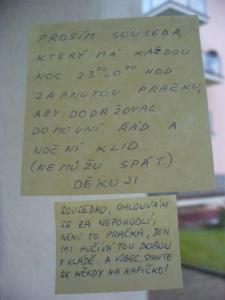 PROSÍM SOUSEDA,
KTERÝ MÁ KAŽDOU
NOC 23⁰⁰-0³⁰ HOD
ZAPNUTOU PRAČKU,
ABY DODRŽOVAL
DOMOVNÍ ŘÁD A
NOČNÍ KLID.
(NEMŮŽU SPÁT)
DĚKUJI
SOUSEDKO, OMLOUVÁM
SE ZA NEPOHODLÍ,
NENÍ TO PRAČKA, JEN
MI HUČÍVÁ TOU DOBOU
V KLÁDĚ. A VŮBEC, STAVTE
SE NĚKDY NA KAFÍČKO!